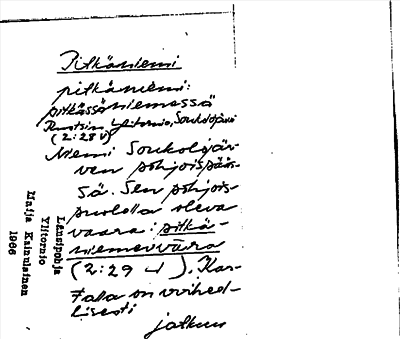 Pitkäniemi
pitkäniemi:
pitkässäniemessä
Ruotsin Ylitornio, Soukolojärvi
(2:28 V)
Niemi Soukolojär-
ven pohjoispääs-
sä. Sen pohjois-
puolella oleva
vaara: pitkä-
niemenvaara
(2:29 V). Kar-
talla on virheel-
lisesti
jatkuu
Länsipohja
Ylitornio
Maija Kainulainen
1966